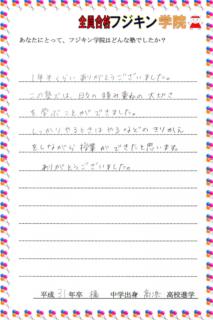 全員合格フジキン学院
あなたにとって、フジキン学院はどんな塾でしたか？
1年半くらいありがとうございました。
この塾では、日々の積み重ねの大切さ
を学ぶことができました。
しっかりやるときはやるなどのきりかえ
をしながら授業ができたと思います。
ありがとうございました。
平成 31 年卒 中学出身 高浜 高校進学